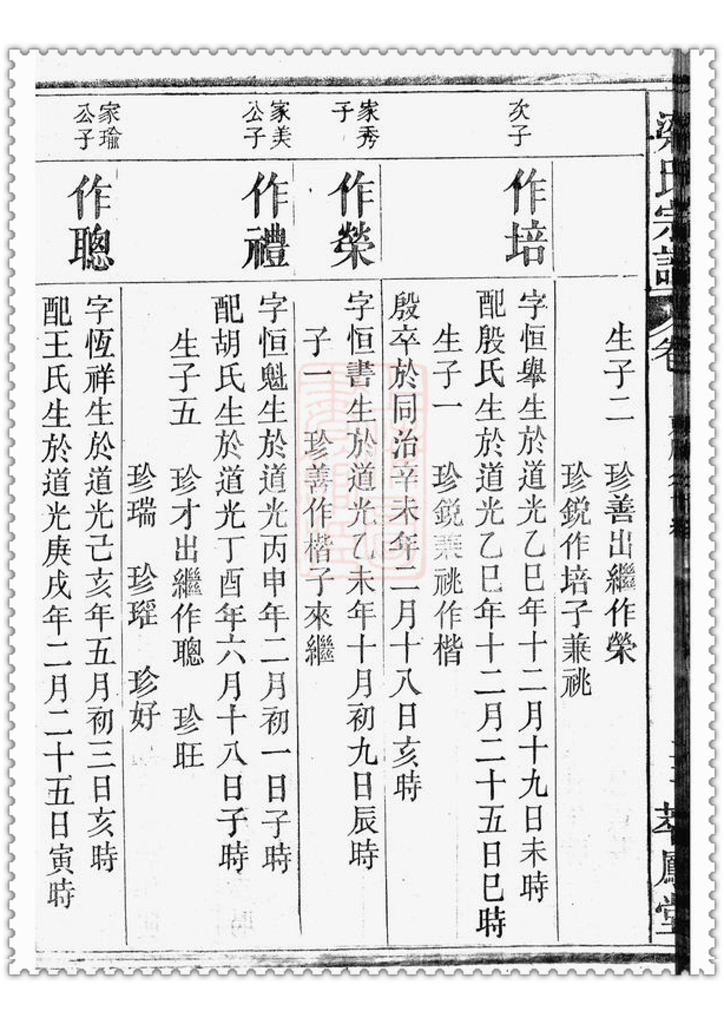 氏宗譜 卷
生子二 珍善出繼作榮
珍銳作培子兼祧
次子
作培
字恒舉生於道光乙巳年十二月十九日未時
配殷氏生於道光乙巳年十二月二十五日巳時
生子一 珍銳兼祧作楷
殷卒於同治辛未年二月十八日亥時
家秀
子
作榮
字恒書生於道光乙未年十月初九日辰時
子一 珍善作楷子來繼
家美
公子
作禮
字恒魁生於道光丙申年二月初一日子時
配胡氏生於道光丁酉年六月十八日子時
生子五 珍才出繼作聰 珍旺
珍瑞 珍瑆 珍好
家瑜
公子
作聰
字恆祥生於道光己亥年五月初三日亥時
配王氏生於道光庚戌年二月二十五日寅時